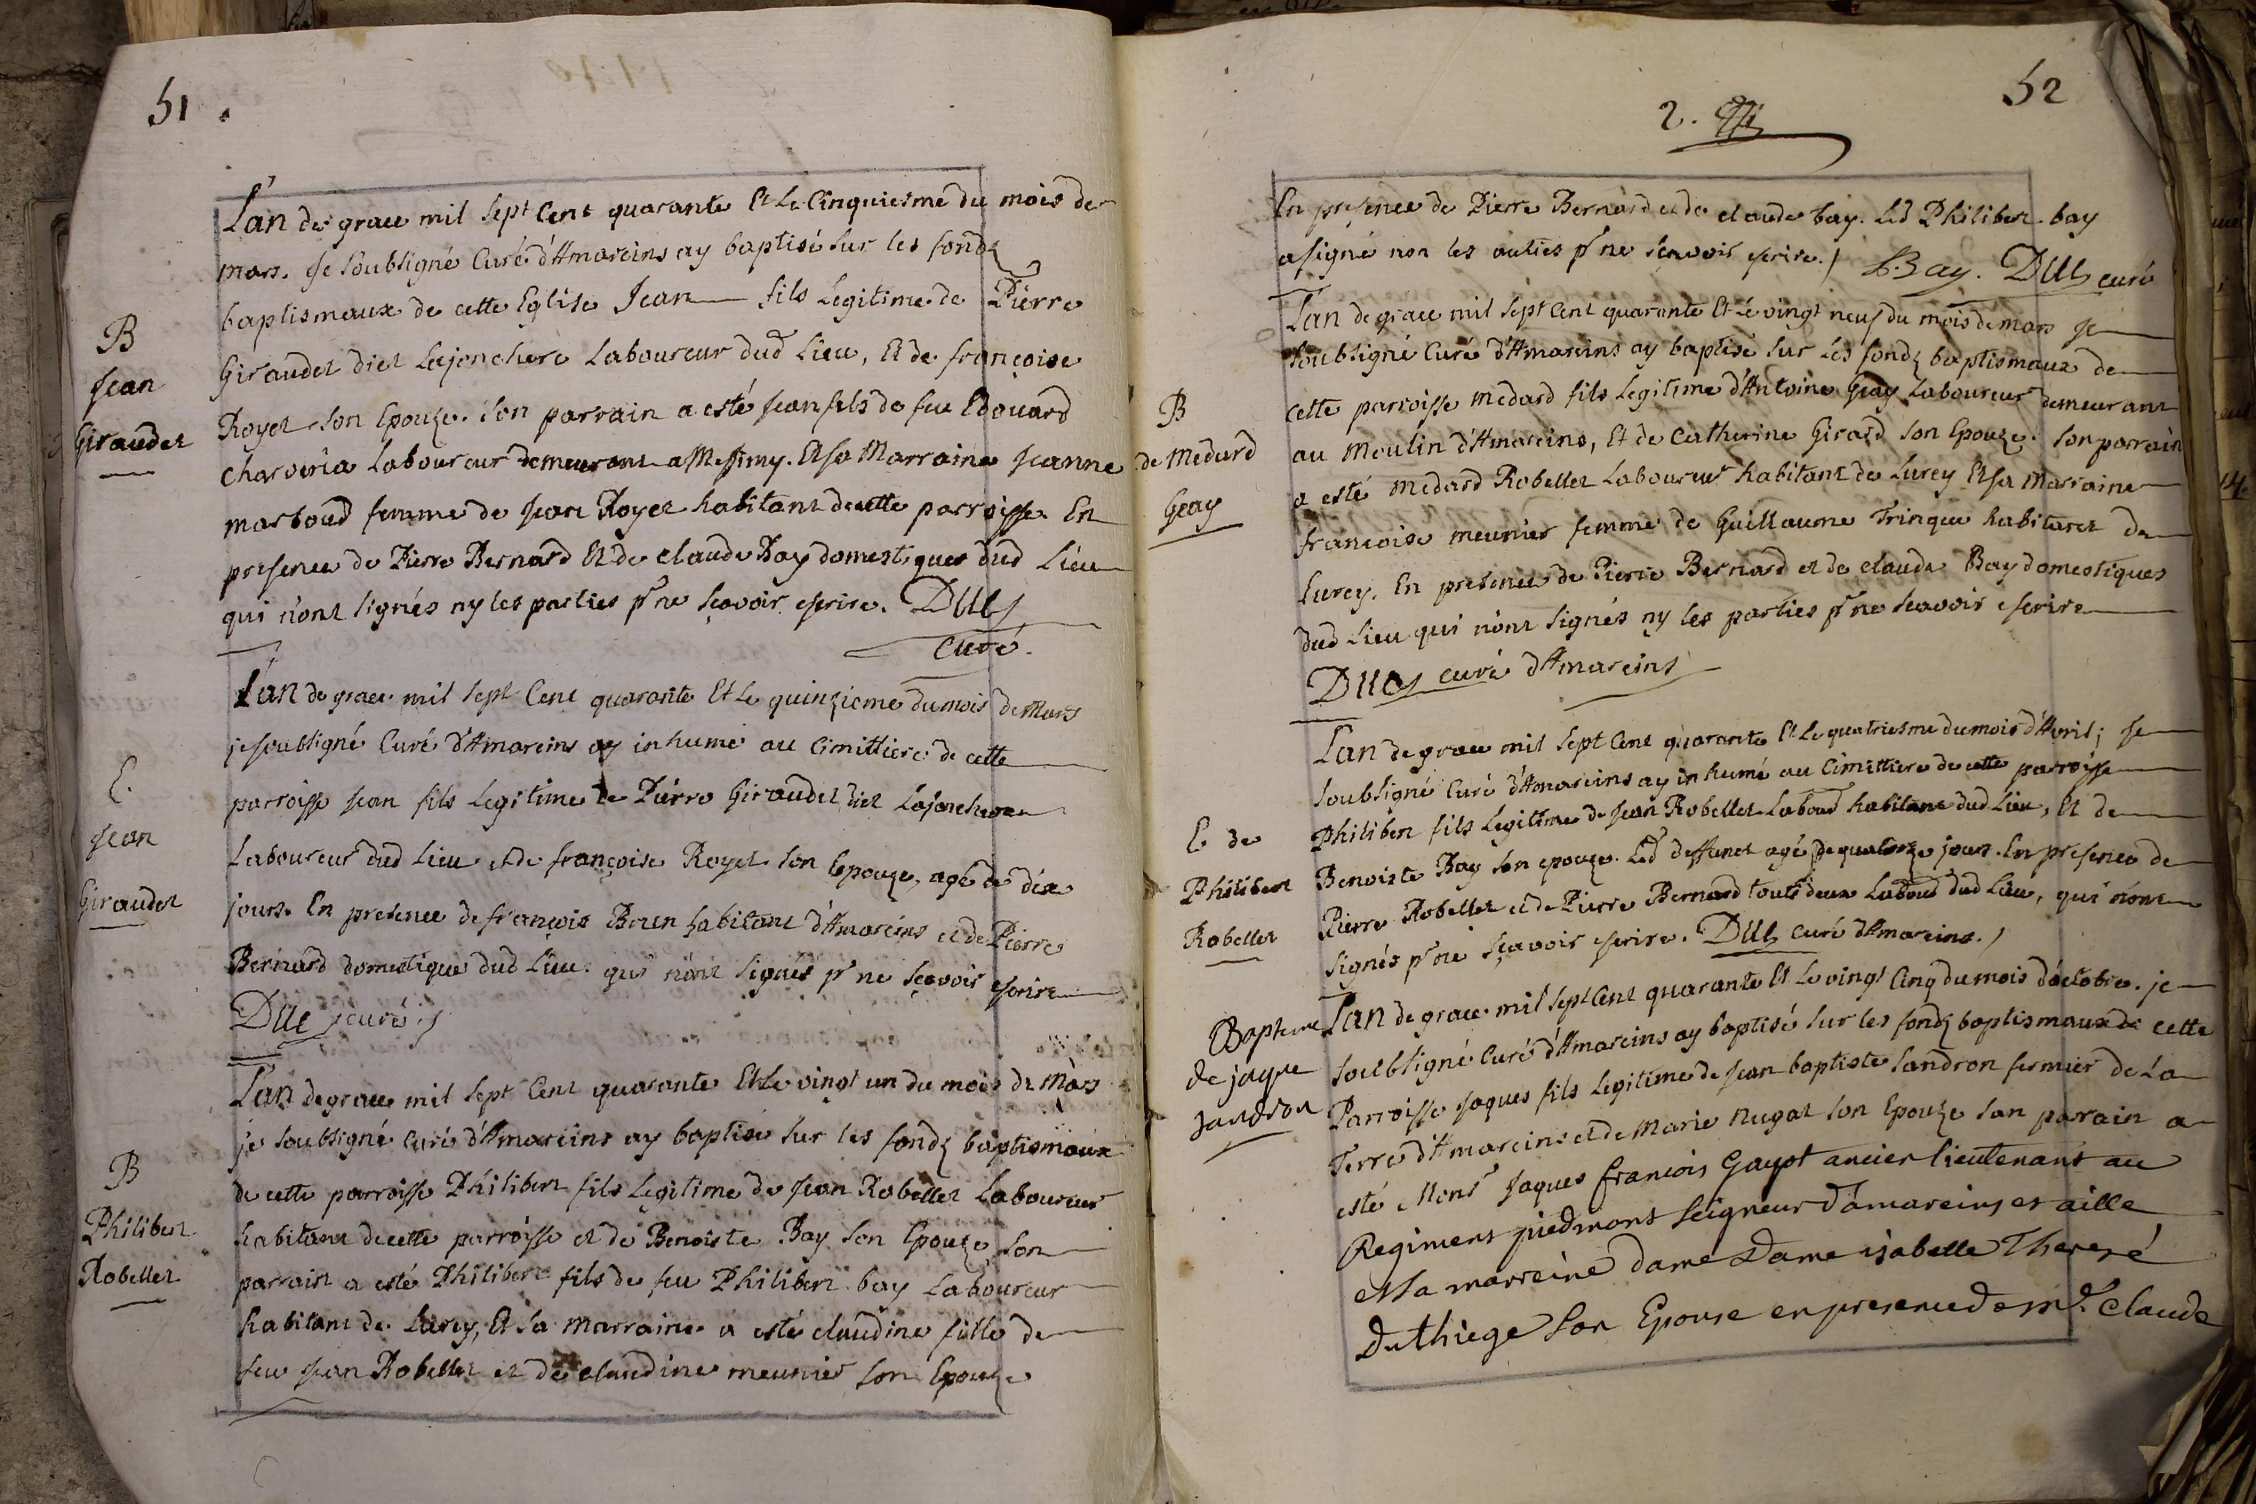 51
Lan de grace mil sept Cent quarante Et Le Cinquiesme du mois de
mars. Je soubsigné Curé d'Amareins ay baptisé sur les fonds
baptismaux de cette Eglise Jean fils Legitime de Pierre
Giraudet diet Lajonchere Laboureur dud Lieu, et de françoise
Royet son Epouze. son parrain a esté jean fils de feu Edouard
Charveria Laboureur demeurant a Messimy. Et sa Marraine Jeanne
marboud femme de jean Royet habitant de cette parroisse En
presence de Pierre Bernard Et de Claude Bay domestiques dud Lieu
qui n'ont signés ny les parties pr ne sçavoir escrire.
curé.
B
Jean
Giraudet
Lan de grace mil sept Cent quarante Et Le quinzieme du mois de Mars
je soubsigné Curé d'Amareins ay inhumé au Cimittiere de cette
parroisse jean fils Legitime de Pierre Giraudet diet Lajonchere
Laboureur dud Lieu et de françoise Royet son Epouze, agé de dix
jours. En presence de françois Boven habitant d'Amareins et de Pierre
Bernard domestique dud Lieu. qui n'ont signés pr ne sçavoir escrire
curé
E.
Jean
Giraudet
Lan de grace mil sept Cent quarante Et Le vingt un du mois de Mars
je soubsigné Curé d'Amareins ay baptisé sur les fonds baptismaux
de cette parroisse Philibert fils Legitime de Jean Robellet Laboureur
habitant de cette parroisse et de Benoiste Bay son Epouze, son
parrain a esté Philibert fils de feu Philibert bay Laboureur
habitant de Lurcy, Et sa Marraine a esté claudine fille de
feu Jean Robellet et de claudine meunier son Epouze
B
Philibert
Robellet
52
2.
En presence de Pierre Bernard et de claude bay. Led Philibert bay
a signé non les autres pr ne sçavoir escrire. Bay. curé
Lan de grace mil sept Cent quarante Et Le vingt neuf du mois de mars je
soubsigné Curé d'Amareins ay baptisé sur les fonds baptismaux de
cette parroisse Medard fils Legitime d'Antoine Geay Laboureur demeurant
au Moulin d'Amareins, Et de Catherine Girard son Epouze. son parrain
a esté Medard Robellet Laboureur habitant de Lurcy Et sa Marraine
francoise meunier femme de Guillaume Trinque habitant de
Lurcy. En presence de Pierre Bernard et de claude Bay domestiques
dud Lieu qui n'ont signés ny les parties pr ne sçavoir escrire
curé d'Amareins
B
de Medard
Geay
Lan de grace mil sept Cent quarante Et Le quatriesme du mois d'Avril; je
soubsigné Curé d'Amareins ay inhumé au Cimittiere de cette parroisse
Philibert fils Legitime de jean Robellet Labour habitant dud Lieu, Et de
Benoiste Bay son epouze. Led deffunct agé de quatorze jours. En presence de
Pierre Robellet et de Pierre Bernard touts deux Labour dud Lieu, qui n'ont
signés pr ne sçavoir escrire. curé d'Amareins.
E de
Philibert
Robellet
Lan de grace mil sept Cent quarante Et Le vingt Cinq du mois d'octobre. je
soubsigné Curé d'Amareins ay baptisé sur les fonds baptismaux de cette
Parroisse Jaques fils Legitime de jean baptiste Sandron fermier de La
Terre d'Amareins et de Marie Nugat son Epouze son parain a
esté Monsr Jaques francois Gayot ancien lieutenant au
Regiment piedmont Seigneur d'amareins et aille
et sa marreine dame Dame isabelle Theresé
Duthiege son Epouse en presence de mr. Claude
Bapteme
de jaque
sandron